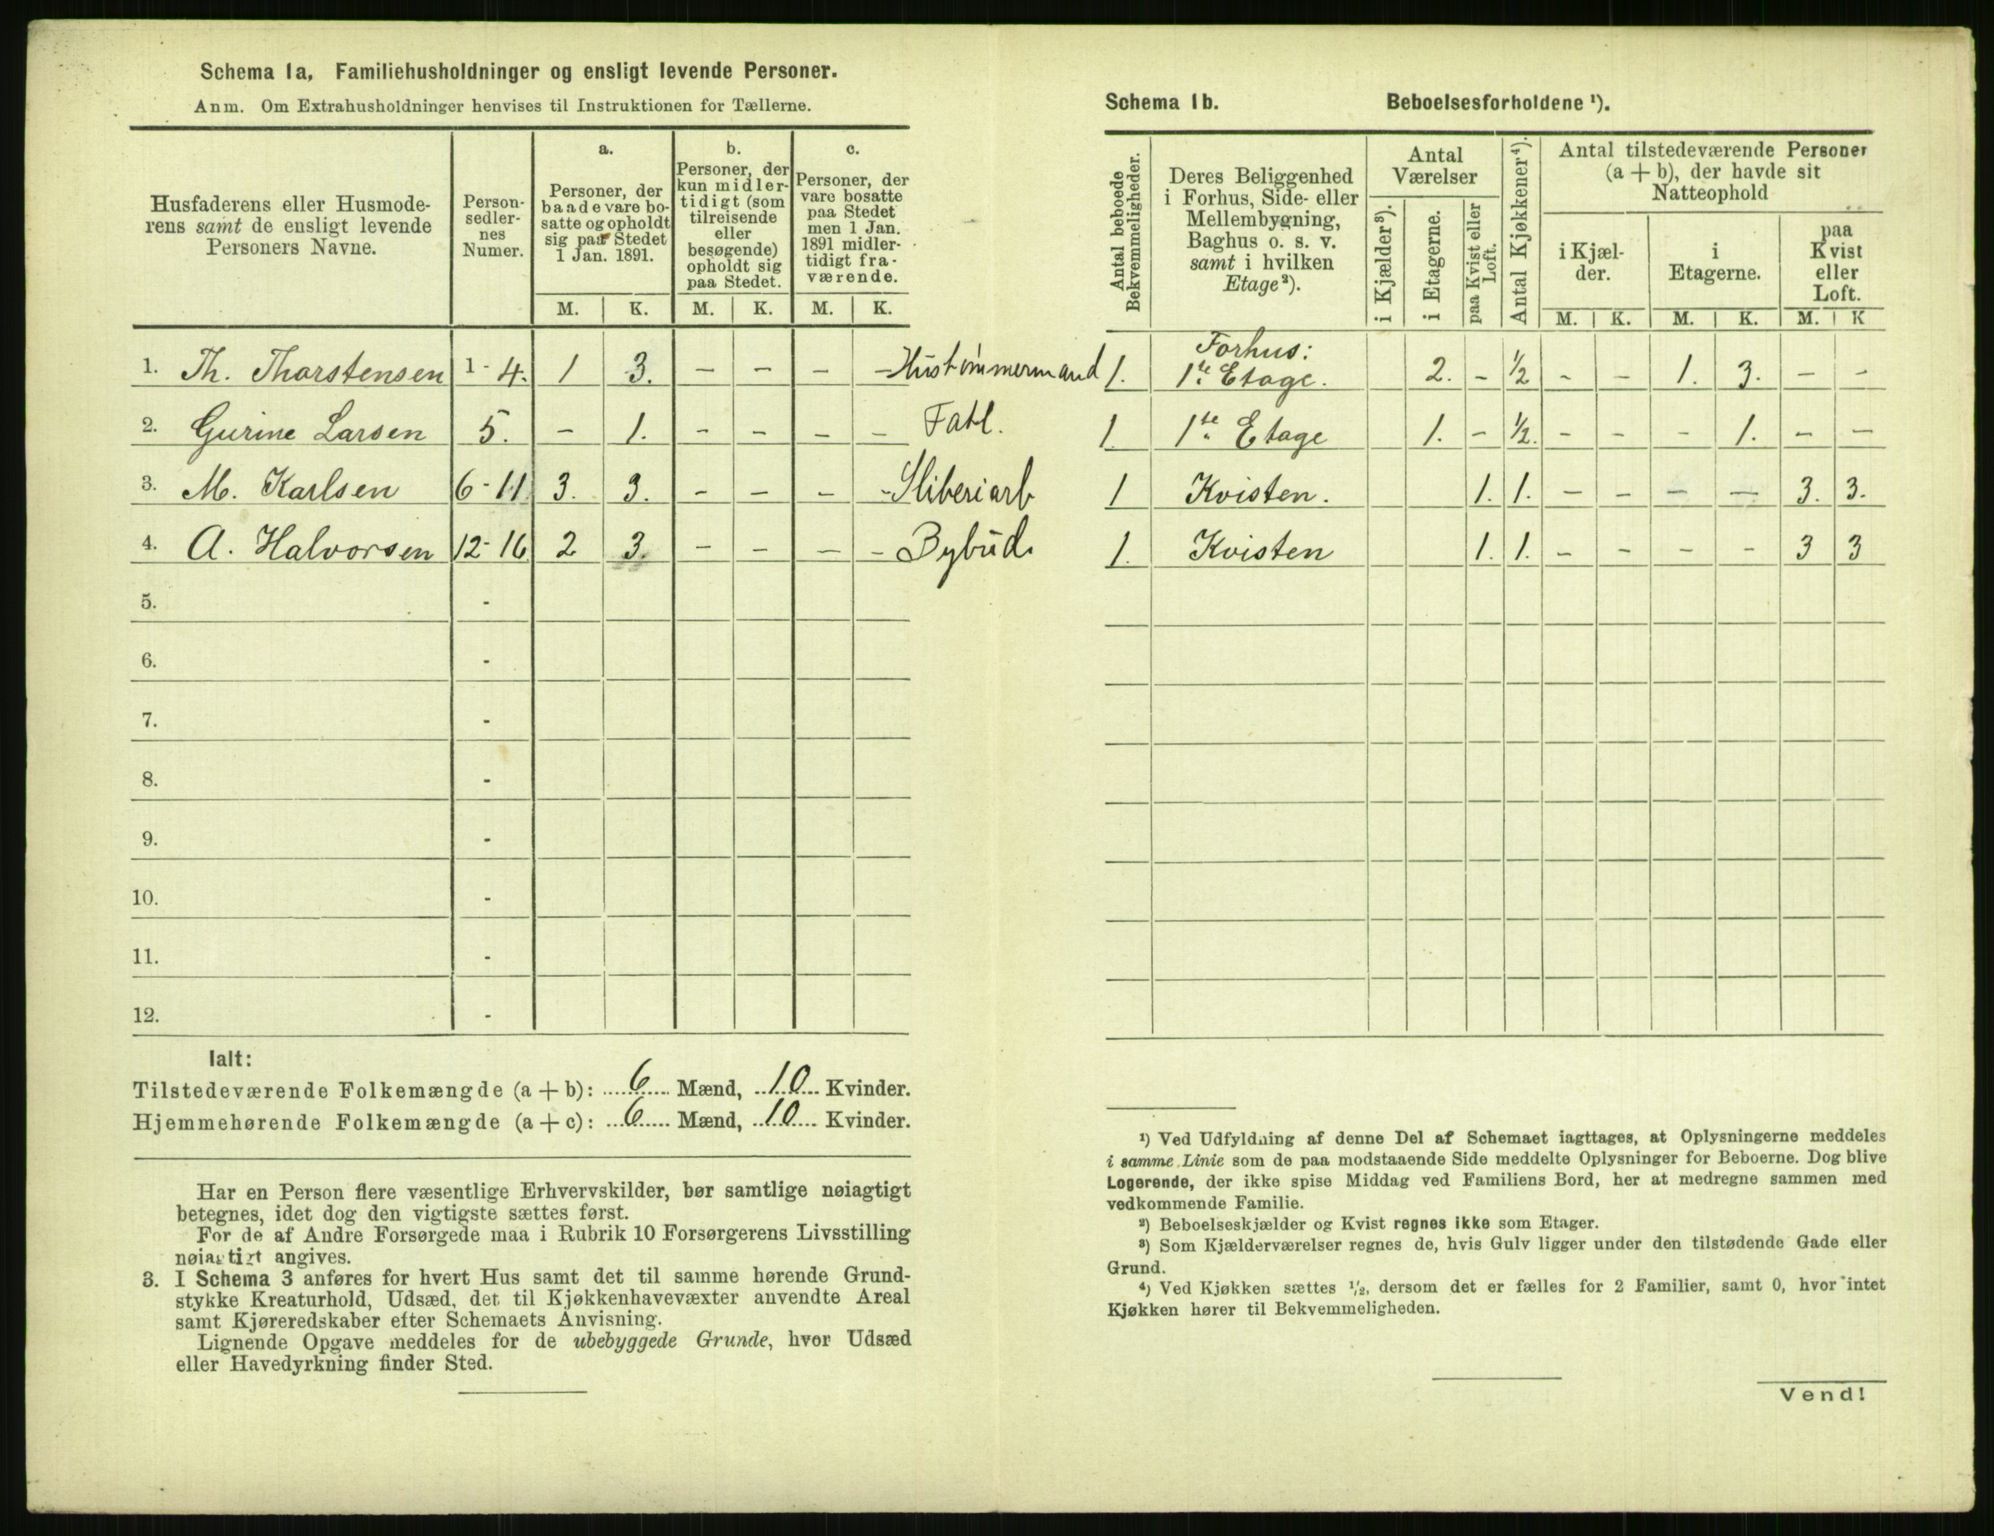 Schema 1a, Familiehusholdninger og ensligt levende Personer.
Anm. Om Extrahusholdninger henvises til Instruktionen for Tællerne.
Husfaderens eller Husmoderens samt de ensligt levende Personers Navne.
Person-sedler-nes Numer.
a.
Personer, der baade vare bosatte og opholdt sig paa Stedet 1 Jan. 1891.
b.
Personer, der kun midlertidigt (som tilreisende eller besøgende) opholdt sig paa Stedet.
c.
Personer, der vare bosatte paa Stedet men 1 Jan. 1891 midlertidigt fraværende.
M. K. M. K. M. K.
1. Th. Thorstensen 1-4. 1 3. - - - - Hustømmermand
2. Gurine Larsen 5. - 1. - - - - Fatl.
3. M. Karlsen 6-11 3. 3. - - - - Sliberiarb
4. A. Halvorsen 12-16 2 3. - - - - Bybud.
5. -
6. -
7. -
8. -
9. -
10. -
11. -
12. -
Ialt:
Tilstedeværende Folkemængde (a + b): 6 Mænd, 10 Kvinder.
Hjemmehørende Folkemængde (a + c): 6 Mænd, 10 Kvinder.
Har en Person flere væsentlige Erhvervskilder, bør samtlige nøiagtigt
betegnes, idet dog den vigtigste sættes først.
For de af Andre Forsørgede maa i Rubrik 10 Forsørgerens Livsstilling
nøiagtigt angives.
3. I Schema 3 anføres for hvert Hus samt det til samme hørende Grund-
stykke Kreaturhold, Udsæd, det til Kjøkkenhavevæxter anvendte Areal
samt Kjøreredskaber efter Schemaets Anvisning.
Lignende Opgave meddeles for de ubebyggede Grunde, hvor Udsæd
eller Havedyrkning finder Sted.
Schema 1b. Beboelsesforholdene ¹).
Antal beboede Bekvemmeligheder.
Deres Beliggenhed i Forhus, Side- eller Mellembygning, Baghus o. s. v. samt i hvilken Etage²).
Antal Værelser
i Kjælder³).
i Etagerne.
paa Kvist eller Loft.
Antal Kjøkkener⁴).
Antal tilstedeværende Personer (a + b), der havde sit Natteophold
i Kjælder.
i Etagerne.
paa Kvist eller Loft.
M. K. M. K. M. K
1. Forhus: 1ste Etage. 2. - ½ - - 1. 3. - -
1 1ste Etage 1. - ½. - - - 1. - -
1 Kvisten. 1. 1. - - - - 3. 3.
1. Kvisten 1. 1. - - - - 3 3
¹) Ved Udfyldning af denne Del af Schemaet iagttages, at Oplysningerne meddeles
i samme Linie som de paa modstaaende Side meddelte Oplysninger for Beboerne. Dog blive
Logerende, der ikke spise Middag ved Familiens Bord, her at medregne sammen med
vedkommende Familie.
²) Beboelseskjælder og Kvist regnes ikke som Etager.
³) Som Kjælderværelser regnes de, hvis Gulv ligger under den tilstødende Gade eller
Grund.
⁴) Ved Kjøkken sættes ½, dersom det er fælles for 2 Familier, samt 0, hvor intet
Kjøkken hører til Bekvemmeligheden.
Vend!